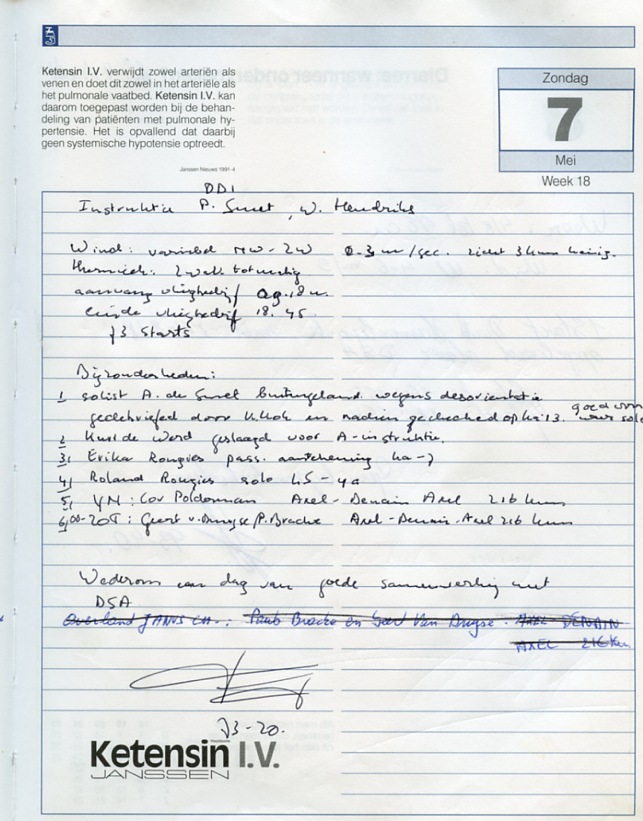 Ketensin I.V. verwijdt zowel arteriën als
venen en doet dit zowel in het arteriële als
het pulmonale vaatbed. Ketensin I.V. kan
daarom toegepast worden bij de behan-
deling van patiënten met pulmonale hy-
pertensie. Het is opvallend dat daarbij
geen systemische hypotensie optreedt.
Janssen Nieuws 1991-4
Zondag
7
Mei
Week 18
DDI
Instruktie P. Smet, W. Hendriks
Wind: variabel NW-ZW 0-3 m/sec. zicht 3 km
Thermiek: zwak tot matig
aanvang vliegbedrijf 09.18 u.
einde vliegbedrijf 18.45
73 starts
Bijzonderheden:
1 solist A. de Smet buitengeland wegens desorientatie
gedebriefed door K.Kok en nadien gechecked op
goed voor
2 werd geslaagd voor A-instruktie.
3, Erika Rongvies pass. aantekening ka-7
4, Roland Rongvies solo
5, YN: Cov Polderman Axel-Denain Axel 216 km
6, : Geert v. P. Bracke Axel-Denain-Axel 216 km
Wederom een dag van goede samenwerking met
DSA
Overland JANUS CH.: Paul Bracke en Geert Van . AXEL DENAIN
AXEL 216 km
73-20.
Ketensin I.V.
JANSSEN